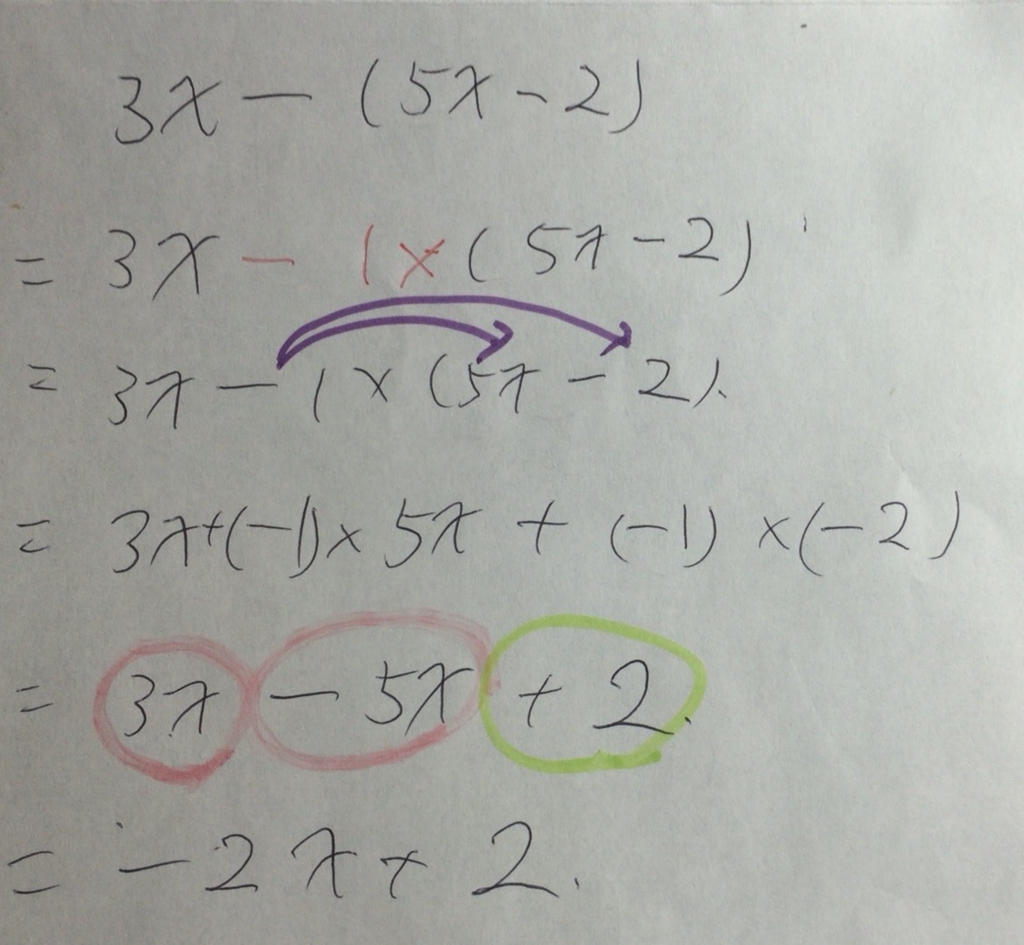 3x - (5x - 2)
= 3x - 1 × (5x - 2)
= 3x - 1 × (5x - 2).
= 3x + (-1) × 5x + (-1) × (-2)
= 3x - 5x + 2.
= -2x + 2.